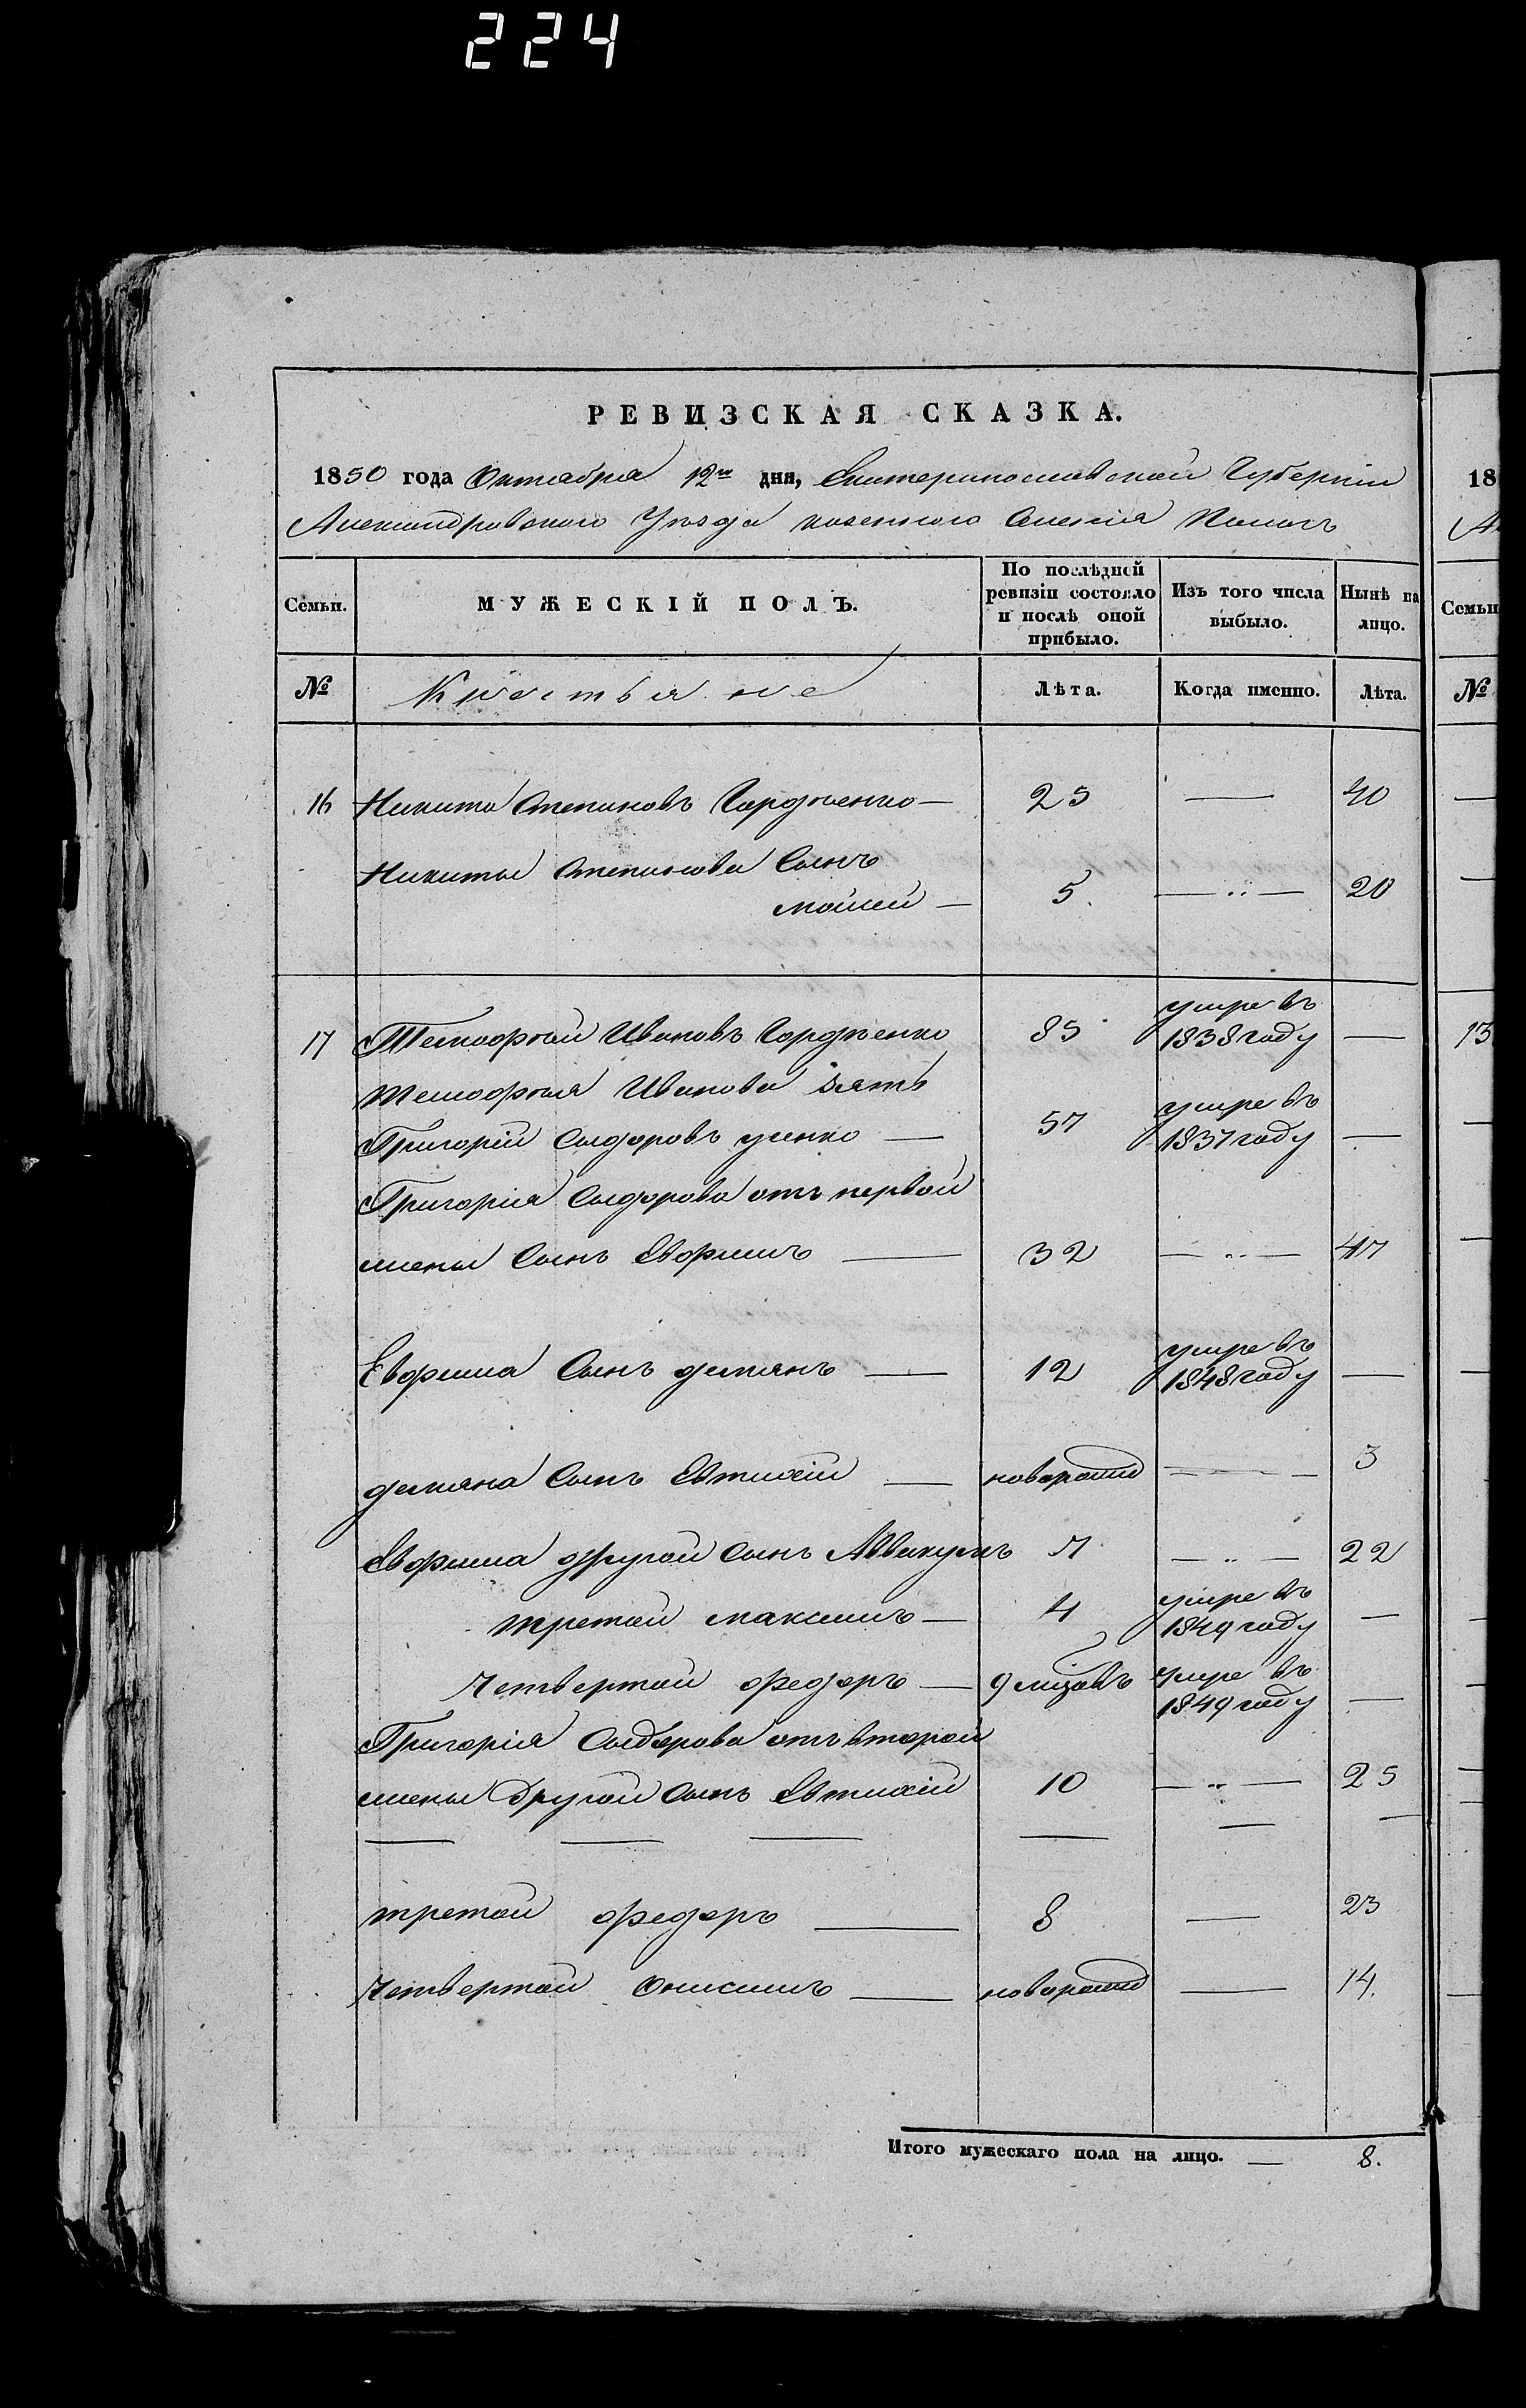 224
РЕВИЗСКАЯ СКАЗКА.
1850 года Октября 12го дня, Екатеринославской Губерніи
Александровского Уѣзда казенного Селенія
Семьи. МУЖЕСКІЙ ПОЛЪ. По послѣдней ревизіи состояло и послѣ оной прибыло. Изъ того числа выбыло. Нынѣ на лицо.
№ Крестьяне Лѣта. Когда именно. Лѣта.
16 Никита Степановъ Гордѣенко — 25 — 40
Никиты Степанова Сынъ
мойсей — 5. — 20
17 Тимофѣй Ивановъ Гордѣенко 85 умре въ 1838 году —
тимофѣя Иванова зять
Григорій Сыдоровъ усенко — 57 умре въ 1837 году —
Григорія Сыдорова отъ первой
жены Сынъ Ефримъ — 32 — 47
Евфима Сынъ демянъ — 12 умре въ 1848 году —
демяна Сынъ Евтихій — новорожд — 3
Евфима другой сынъ Аввакумъ 7 — 22
третой максимъ — 4 умре въ 1849 году —
Четвертой федоръ — 9 умре въ 1849 году —
Григорія Сыдорова отъ второй
жены Другой Сынъ Евтихій 10 — 25
третой федоръ — 8 — 23
Четвертой Онисимъ — новорожд — 14.
Итого мужескаго пола на лицо. — 8.
18
Семьи
№
13